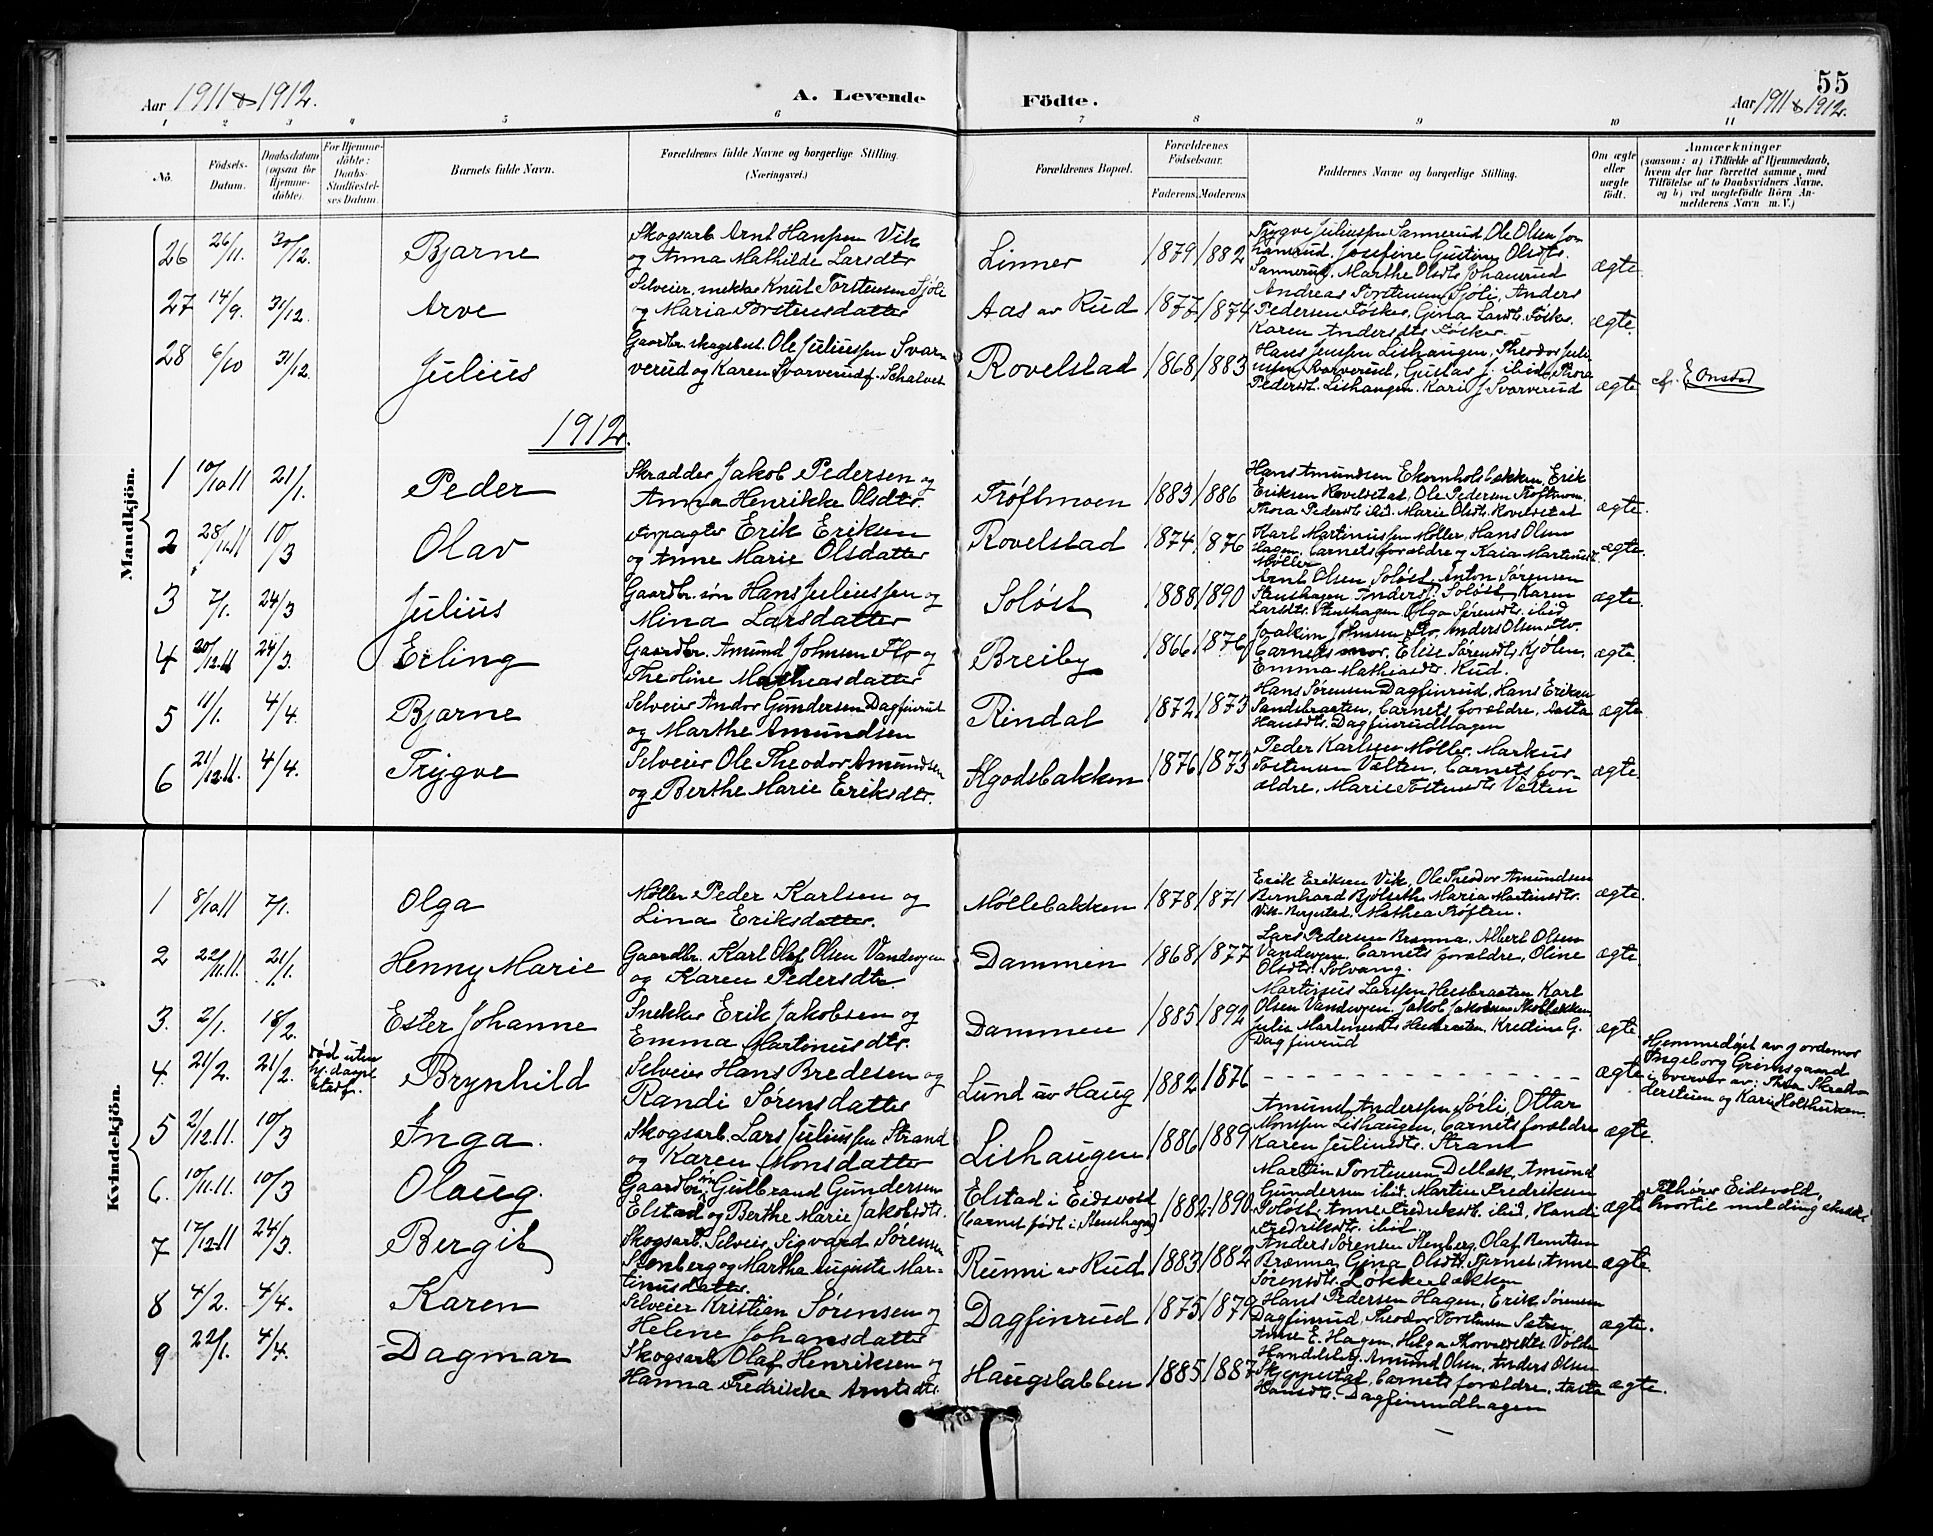 55
Aar 1911 & 1912. A. Levende Födte. Aar 1911 & 1912.
1 2 3 4 5 6 7 8 9 10 11
No. Födsels-Datum. Daabsdatum (ogsaa for Hjemme-döbte). For Hjemme-döbte: Daabs-Stadfæstel-ses Datum. Barnets fulde Navn. Forældrenes fulde Navne og borgerlige Stilling. (Næringsvei.) Forældrenes Bopæl. Forældrenes Födselsaar. Faderens. Moderens. Faddernes Navne og borgerlige Stilling. Om ægte eller uægte födt. Anmærkninger (saasom: a) i Tilfælde af Hjemmedaab, hvem der har forrettet samme, med Tilföielse af to Daabsvidners Navne, og b) ved uægtefödte Börn An-melderens Navn m. V.)
Mandkjön.
26 26/11. 30/12. Bjarne Skogsarb. Arnt Hanssen Vik og Anna Mathilde Larsdtr Linner 1879 1882 Trygve Juliussen Sannerud, Ole Olsen Johansrud, Josefine Gustine Olsdtr. Sannerud, Marthe Olsdtr Johansrud ægte.
27 14/9. 31/12. Arve Selveier, snekker Knut Torstensen Sjøli og Maria Torstensdatter Aas av Rud 1877 1874 Andreas Torstensen Sjøli, Anders Pedersen Føsker, Gina Larsdtr. Føsker, Karen Andersdtr Føsker. ægte.
28 6/10 31/12. Julius Gaardbr. skogsbest. Ole Juliussen Svarverud og Karen Svarverud f. Schalvet Rovelstad 1868 1883 Hans Jenssen Lishaugen, Theodor Juliussen Svarverud, Gustav J. ibid., Thora Pedersdtr. Lishaugen, Kari J Svarverud ægte. af. E. Onstad
1912.
1 10/10 11 21/1. Peder Skrædder Jakob Pedersen og Anna Henrikke Olsdtr. Trøftmoen 1883 1886 Hans Amundsen Ekornholtbakken, Erik Eriksen Rovelstad, Ole Pedersen Trøftmoen, Thora Pedersdtr ibid, Marie Olsdtr. Rovelstad ægte.
2 28/11.11 10/3 Olav Forpagter Erik Eriksen og Anne Marie Olsdatter Rovelstad 1874 1876 Karl Martinussen Møller, Hans Olsen Hagen, barnets forældre og Kaia Martinusd. Møller ægte.
3 7/1. 24/3 Julius Gaardbr. søn Hans Juliussen og Mina Larsdatter Soløst 1888 1890 Arnt Olsen Soløst, Anton Sørensen Stenshagen, Anders J. Soløst, Karen Larsdtr. Stenshagen, Olga Sørensdtr. ibid ægte.
4 20/12.11 24/3. Erling Gaardbr. Amund Johnsen Flo og Theoline Matheasdatter Breiby 1866 1876 Joakim Johnsen Flo, Anders Olsen Flo, barnets mor, Elise Sørensdtr Kjølen, Emma Mathiasdtr. Rud. ægte.
5 11/1. 4/4. Bjarne Selveier Andor Gundersen Dagfinrud og Marthe Amundsen Rindal 1872 1873 Hans Sørensen Dagfinrud, Hans Eriksen Sandsbraaten, barnets forældre, Aasta Hansdtr. Dagfinrudhagen ægte
6 21/12.11. 4/4. Trygve Selveier Ole Theodor Amundsen og Berthe Marie Eriksdtr. Algodsbakken 1876 1873 Peder Karlsen Møller, Markus Tostensen Vælten, barnets forældre, Marie Tostensdtr Vælten ægte.
Kvindekjön.
1 8/10 11 7/1. Olga Møller Peder Karlsen og Lina Eriksdatter. Møllebakken 1878 1871 Erik Eriksen Vik, Ole Theodor Amundsen, Bernhard Bjølseth, Maria Martinsdtr. Vik Bergstad, Mathea Trøften. ægte.
2 22/11.11. 21/1. Henny Marie Gaardbr. Karl Olaf Olsen Vandvegen og Karen Pedersdtr. Dammen 1868 1877 Lars Pedersen Brænna, Albert Olsen Vandvegen, barnets forældre, Oline Olsdtr. Solvang. ægte.
3. 2/1. 18/2. Ester Johanne Snekker Erik Jakobsen og Emma Martinusdtr. Dammen 1885 1892 Martinus Larssen Heesbraaten, Karl Olsen Vandvegen, Jakob Jakobsen, Julie Martinusdtr Heesbraaten, Kredine G. Dagfinrud ægte
4. 21/2. 21/2. Død uten hj. daaps stadf. Brynhild Selveier Hans Bredesen og Randi Sørensdatter Lund av Haug 1882 1876 - - - - - ægte Hjemmedøpt av jordemor Ingeborg Grimsgaard i overvær av: Thea Skrædderstuen og Kari Holthusen.
5 2/12.11. 10/3 Inga. Skogsarb. Lars Juliussen Strand og Karen Monsdatter Lishaugen 1886 1889 Amund Anderssen Sørli, Ottar Monssen Lishaugen, barnets forældre, Karen Juliusdtr. Strand ægte.
6. 10/11.11. 10/3 Olaug. Gaardbr. søn Gulbrand Gundersen Elstad og Berthe Marie Jakobsdtr. Elstad i Eidsvold (barnet født i Stenshagen) 1882 1890 Martin Torstensen Delbæk, Amund Gundersen ibid, Martin Fredriksen Soløst, Anne Fredriksdtr. ibid, Randi Fredriksdtr. ibid. ægte Tilhører Eidsvold, hvortil melding
7 17/12.11 24/3. Bergit Skogsarb. Selveier, Sigvard Sørensen Stenberg og Martha Auguste Martinusdatter. Runni av Rud 1883 1882 Anders Sørensen Stenberg, Olaf Berntsen Brænna, Gina Olsdtr. Tjernet, Anne Sørensdtr. Løkkebakken ægte.
8 4/2. 4/4. Karen Selveier Kristian Sørensen og Helene Johansdatter Dagfinrud 1875 1879 Hans Pedersen Hagen, Erik Sørensen Dagfinrud, Theodor Torstensen Sætren, Anne E. Hagen, Helga Thorvaldsdtr. Volden ægte.
9 22/1. 4/4. Dagmar Skogsarb. Olaf Henriksen og Hanna Fredrikke Arntsdtr. Haugslabben 1885 1887 Handelsbg. Amund Olsen, Anders Olsen Skjeppestad, barnets forældre, Aasta Hansdtr. Dagfinrudhagen ægte.